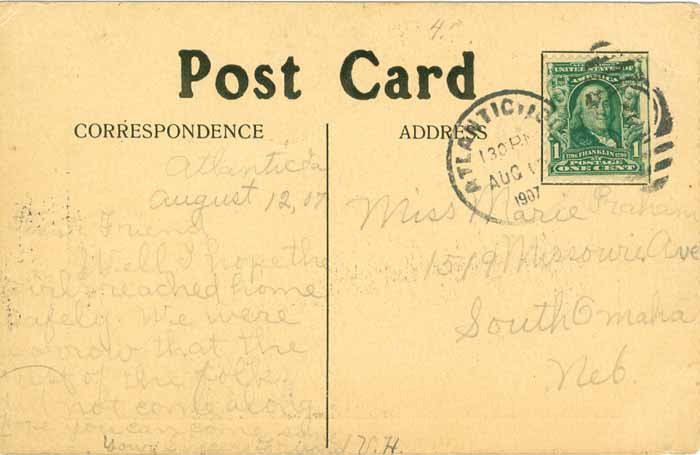 4
Post Card
CORRESPONDENCE
ADDRESS
UNITED STATES OF
AMERICA
1 FRANKLIN 1
POSTAGE
ONE CENT
ATLANTIC, IO
130 PM
AUG 1
1907
Atlantic Ia
August 12, 07
Dear Friend
Well I hope the
girls reached home
safely. We were
sorrow that the
rest of the folks
not come along
hope you can come
Your Friend V.H.
Miss Marie Praham
1519 Missouri Ave
South Omaha
Neb.